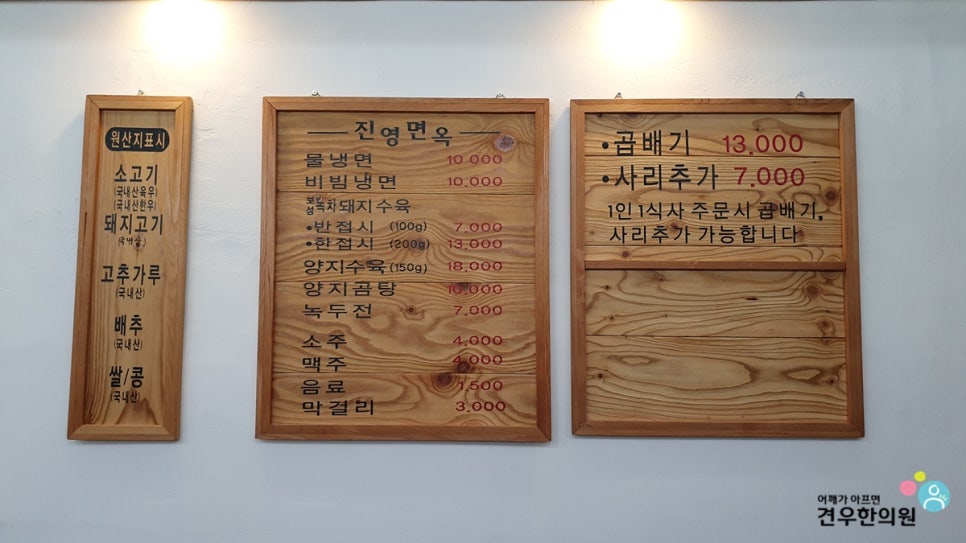 원산지표시
소고기
(국내산육우)
(국내산한우)
돼지고기
(국내산)
고추가루
(국내산)
배추
(국내산)
쌀/콩
(국내산)
진영면옥
물냉면 10,000
비빔냉면 10,000
보성녹차돼지수육
•반접시 (100g) 7,000
•한접시 (200g) 13,000
양지수육 (150g) 18,000
양지곰탕 10,000
녹두전 7,000
소주 4,000
맥주 4,000
음료 1,500
막걸리 3,000
•곱배기 13,000
•사리추가 7,000
1인 1식사 주문시 곱배기,
사리추가 가능합니다
어깨가 아프면
견우한의원